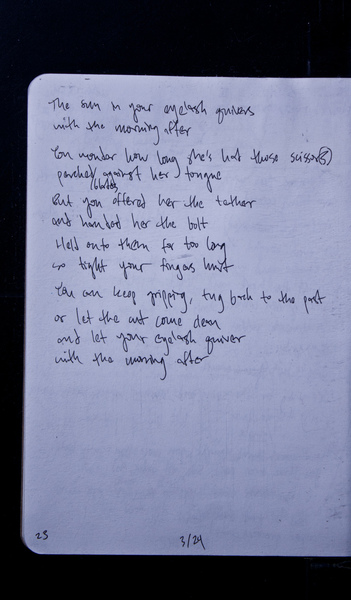 The sun in your eyelash quivers
with the morning after
You wonder how long she's had those scissor(s)
perched against her tongue
/blades
But you offered her the tether
and handed her the bolt
Held onto them far too long
so tight your fingers hurt
You can keep gripping, tug back to the past
or let the cut come clean
and let your eyelash quiver
with the morning after
23
3/24